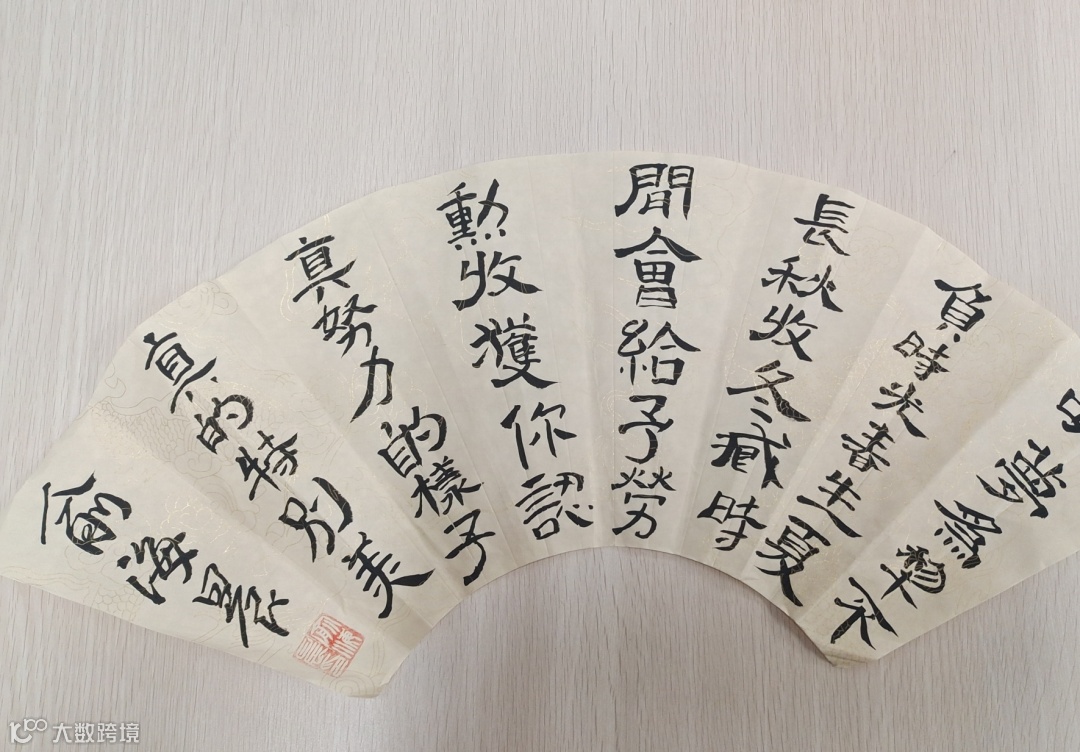 夢為犂不
負時光春生夏
長秋收冬藏時
間會給予勞
勳收獲你認
真努力的樣子
真的特別美
俞海景
大数跨境